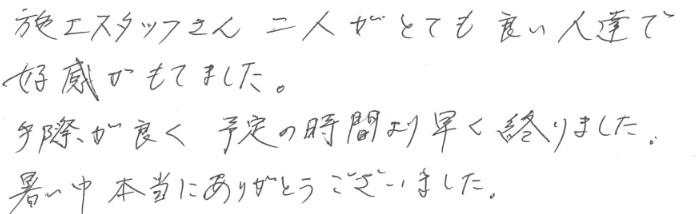 施工スタッフさん 二人がとても良い人達で
好感がもてました。
手際が良く 予定の時間より早く終りました。
暑い中 本当にありがとうございました。